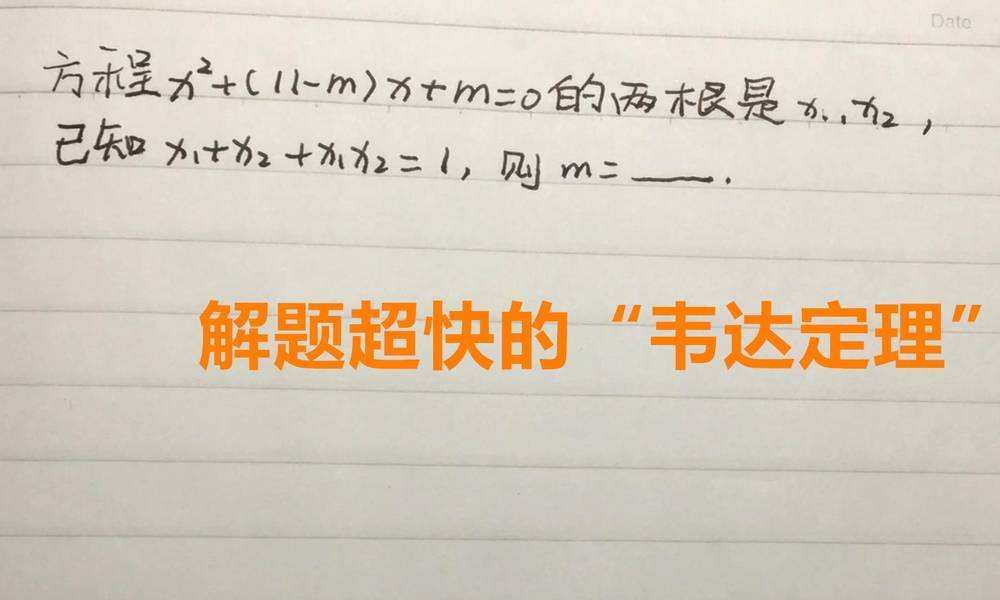 Date
方程x²+(11-m)x+m=0的两根是x₁,x₂,
已知x₁+x₂+x₁x₂=1,则m=____.
解题超快的“韦达定理”